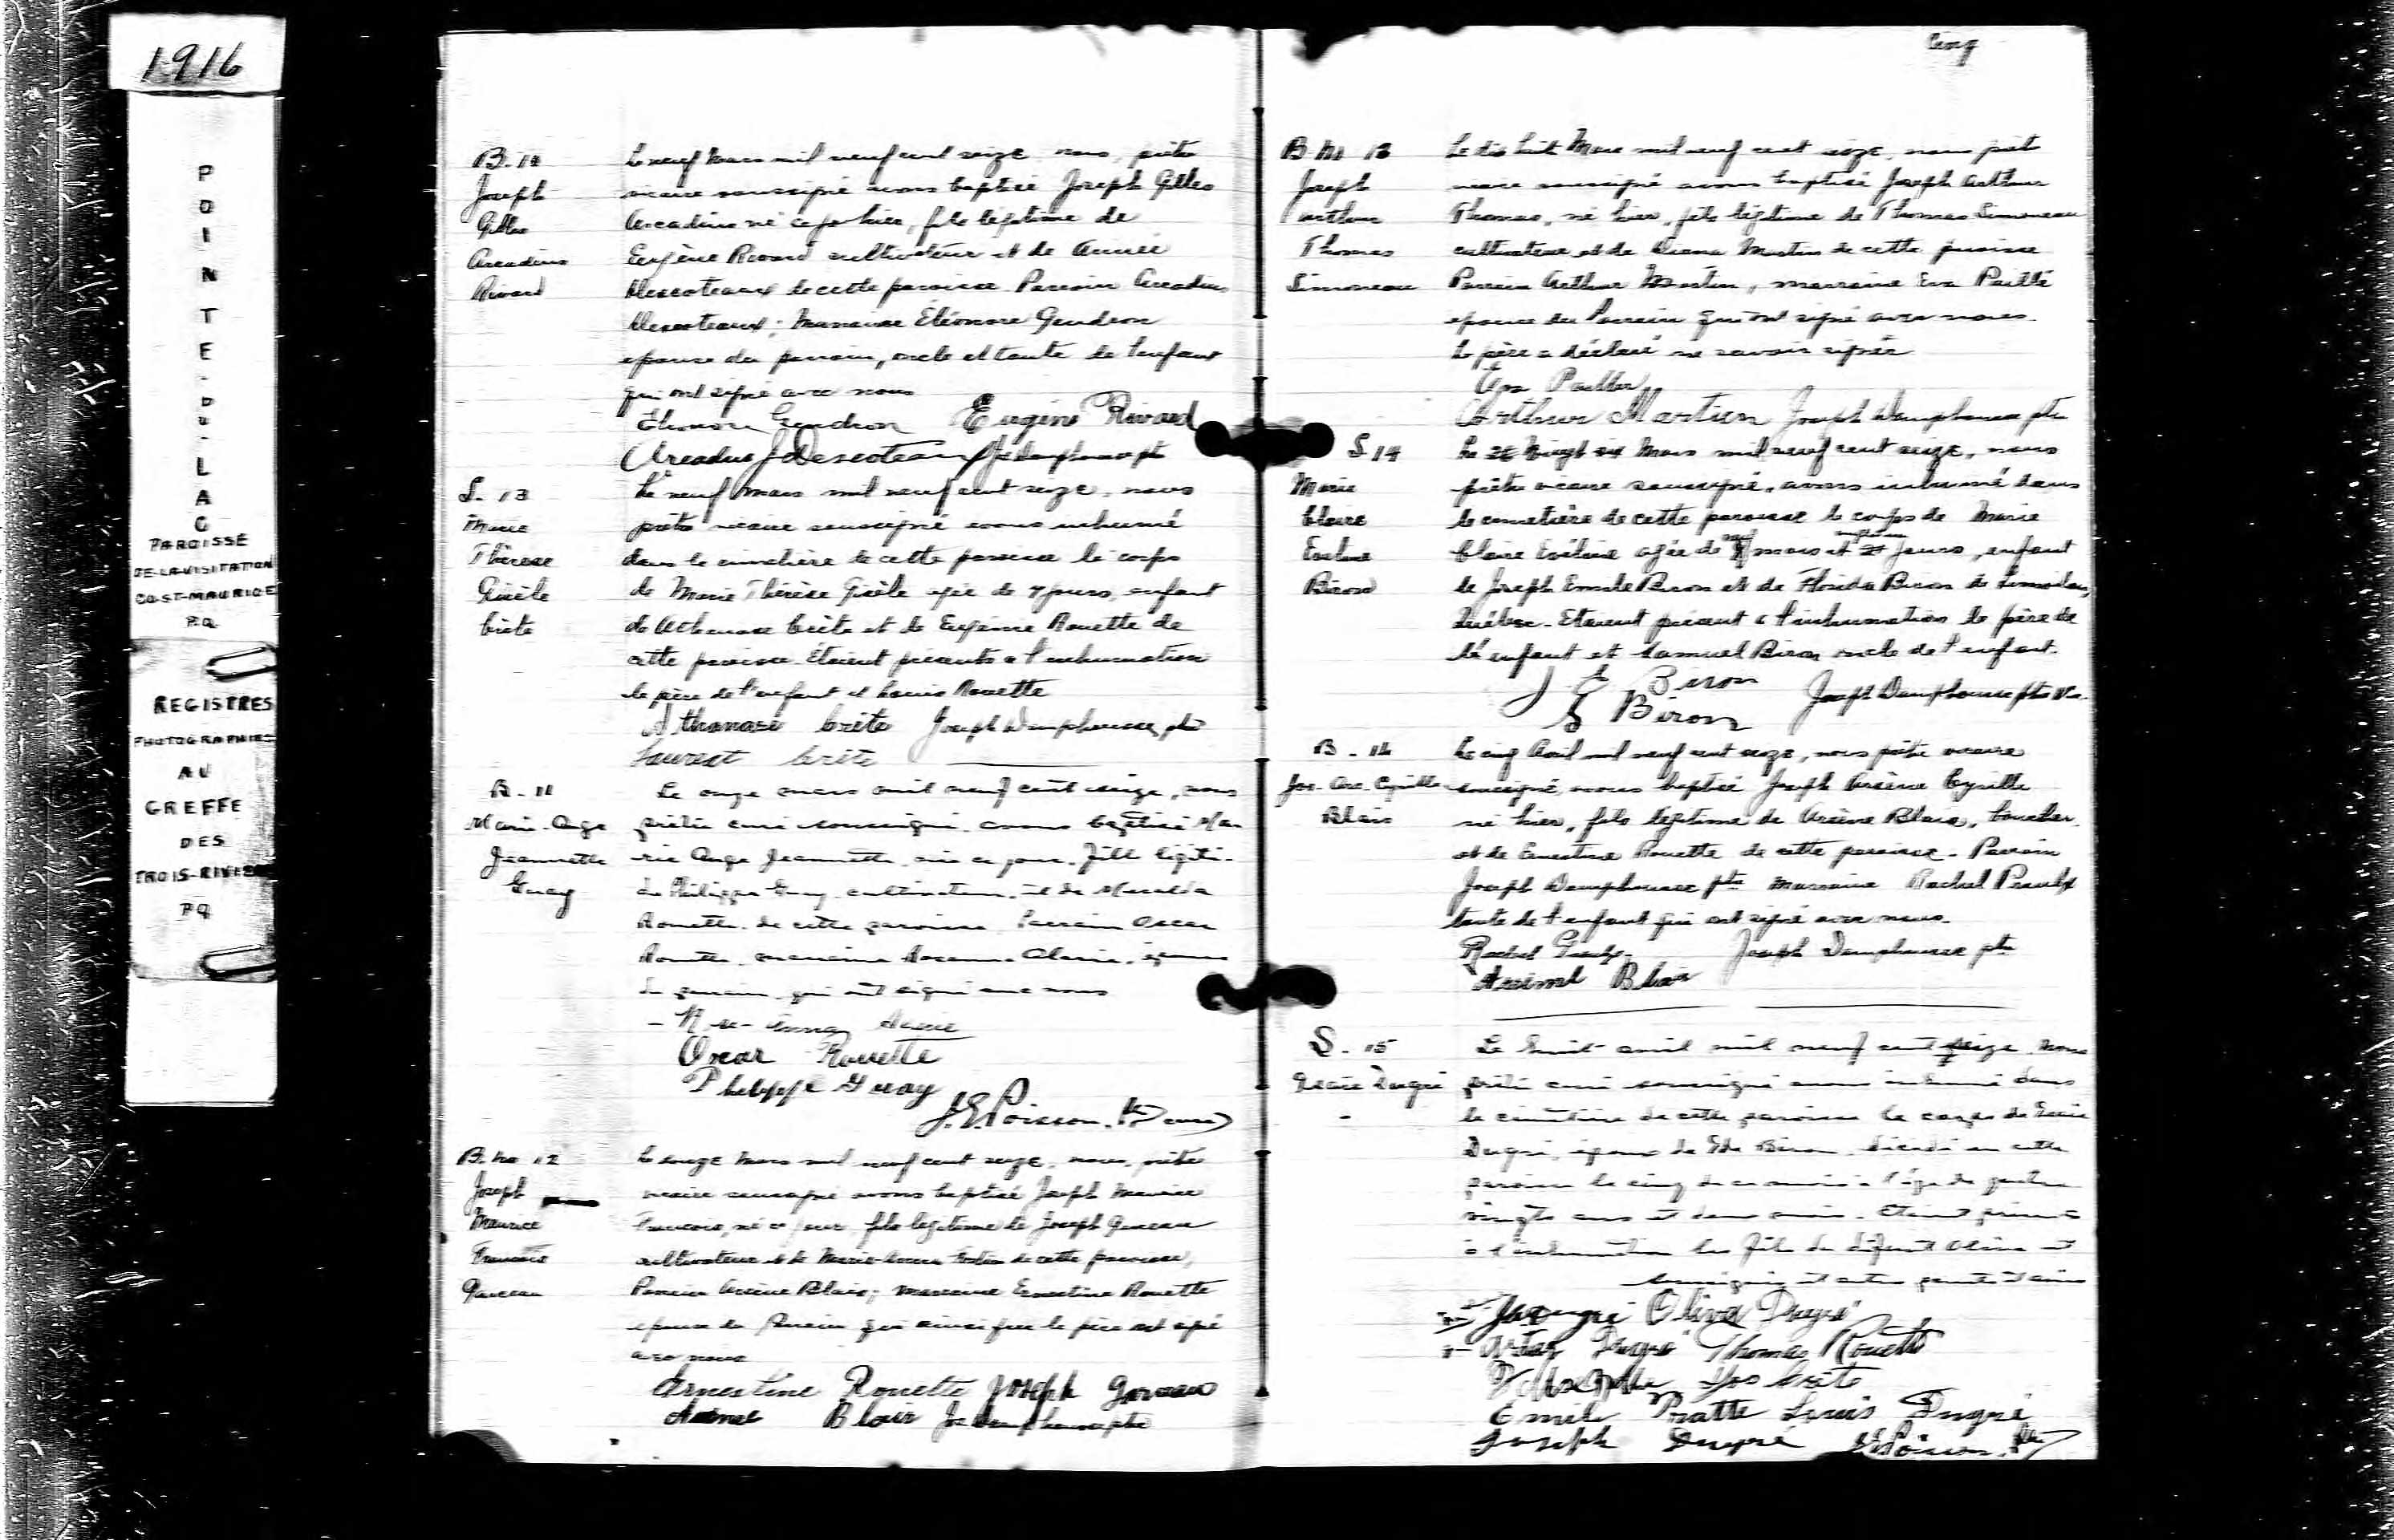 1916
POINTE-DU-LAC
PAROISSE
DE LA VISITATION
CO. ST-MAURICE
P.Q.
REGISTRES
PHOTOGRAPHIES
AU
GREFFE
DES
TROIS-RIVIERES
PQ
B. 10
Joseph
Gilles
Arcadius
Rivard
Le neuf Mars mil neuf cent seize nous, prêtre
vicaire soussigné avons baptisé Joseph Gilles
Arcadius né, fils légitime de
Eugène Rivard cultivateur et de
Descoteaux de cette paroisse. Parrain Arcadius
Descoteaux; Marraine Éléonore Gendron
epouse du parrain, oncle et tante de l'enfant
qui ont signé avec nous
Eleonore Gendron Eugène Rivard
Arcadius J Descoteaux
S. 13
Marie
Thérèse
Gisèle
Crête
Le neuf mars mil neuf cent seize, nous
prêtre vicaire soussigné avons inhumé
dans le cimetière de cette paroisse le corps
de Marie Thérèse Gisèle agée de jours, enfant
de Athanase Crête et de Eugénie Rouette de
cette paroisse. Étaient présents a l'inhumation
le père de l'enfant et Louis Rouette
Athanase Crête Joseph Damphousse ptre
Laurent Crête
B - 11
Marie-Ange
Jeannette
Guay
Le onze mars mil neuf cent seize, nous
prêtre curé soussigné avons baptisé Ma-
rie Ange Jeannette née ce jour, fille légiti-
de Philippe Guay cultivateur et de
Rouette de cette paroisse, Parrain Oscar
Rouette, marraine, épouse
du parrain, qui ont signé avec nous
Oscar Rouette
Philippe Guay
J. E. Poisson. Ptre Curé
B. No 12
Joseph
Maurice
François
Garceau
Le mars mil neuf cent seize, nous, prêtre
vicaire soussigné avons baptisé Joseph Maurice
François, né ce jour, fils légitime de Joseph Garceau
cultivateur et de Marie de cette paroisse,
Parrain Arsène Blais; marraine Ernestine Rouette
epouse du Parrain qui ainsi que le père ont signé
avec nous
Ernestine Rouette Joseph Garceau
Arsène Blais Jos Damphousse ptre
Cinq
B No 13
Joseph
Arthur
Thomas
Simoneau
Le dix huit Mars mil neuf cent seize, nous prêt
vicaire soussigné avons baptisé Joseph Arthur
Thomas, né hier, fils légitime de Thomas Simoneau
cultivateur et de Diana Martin de cette paroisse
Parrain Arthur Martin, marraine Eva Paillé
epouse du Parrain qui ont signé avec nous.
Le père a déclaré ne savoir signer
Arthur Martin Joseph Damphousse ptre
S 14
Marie
Claire
Eveline
Biron
Le vingt six Mars mil neuf cent seize, nous
prêtre vicaire soussigné, avons inhumé dans
le cimetière de cette paroisse le corps de Marie
Claire Evéline agée de mois et jours, enfant
de Joseph Emile Biron et de Florida Biron de Limoilou,
Québec. Etaient présent a l'inhumation le père de
l'enfant et Samuel Biron oncle de l'enfant.
J E Biron
S Biron
Joseph Damphousse ptre Vic.
B - 14
Jos. Ars. Cyrille
Blais
Le cinq Avril mil neuf cent seize, nous prêtre vicaire
soussigné, avons baptisé Joseph Arsène Cyrille
né hier, fils légitime de Arsène Blais, boucher
et de Ernestine Rouette de cette paroisse. Parrain
Joseph Damphousse ptre Marraine Rachel
tante de l'enfant qui ont signé avec nous.
Rachel
Joseph Damphousse ptre
Blais
S. 15
Dugré
Le huit avril mil neuf cent seize, nous
prêtre curé soussigné avons inhumé dans
le cimetière de cette paroisse le corps de
Dugré, époux de Biron, décédé en cette
paroisse le cinq de ce mois à l'âge de quatre
vingts ans et deux mois. Etaient présents
à l'inhumation les fils du défunt
soussignés et autres parents et amis
Oliva Dugré
Dugré Thomas Rouette
Jos Crête
Emile Pratte Louis Dugré
Joseph Dugré J E Poisson. Ptre